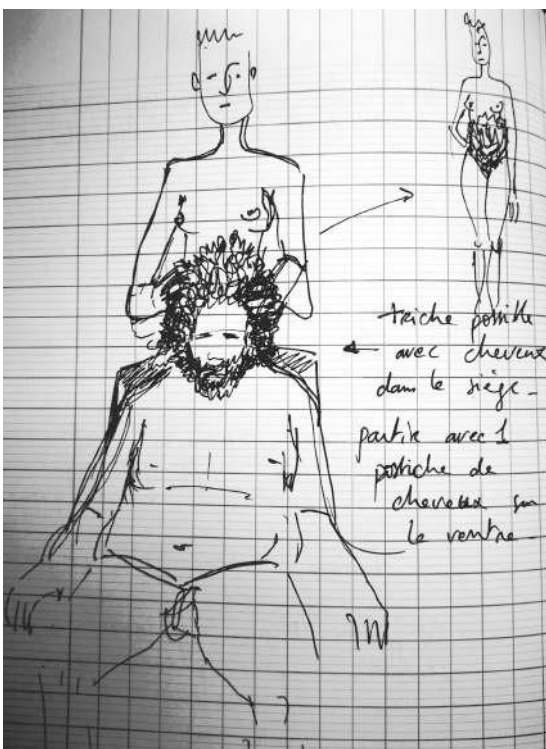 triche possible
avec cheveux
dans le siège -
partie avec 1
postiche de
cheveux sur
le ventre -